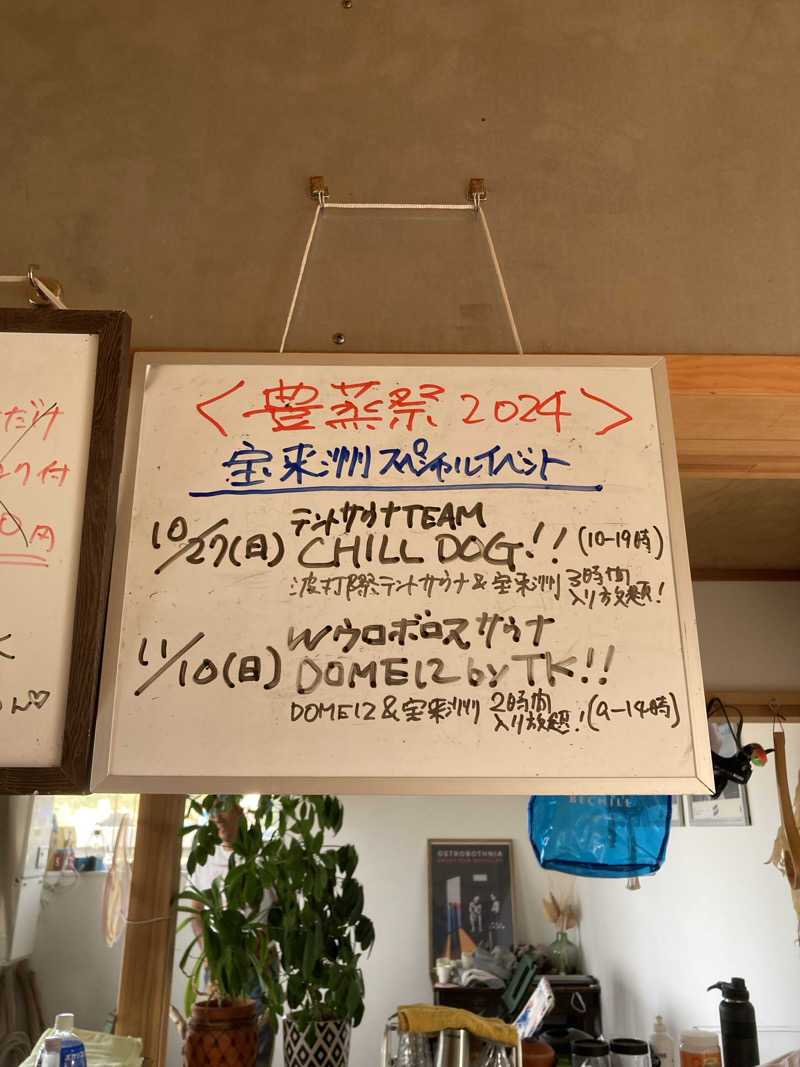 <豊蒸祭 2024>
宝来洲スペシャルイベント
10/27(日) テントサウナTEAM
CHILL DOG!! (10-19時)
波打際テントサウナ&宝来洲 3時間
入り放題!
11/10(日) Wウロボロスサウナ
DOME12 by TK!!
DOME12&宝来洲 2時間
入り放題! (9-14時)
だけ
付
0円
BECHILE
OSTROBOTHNIA